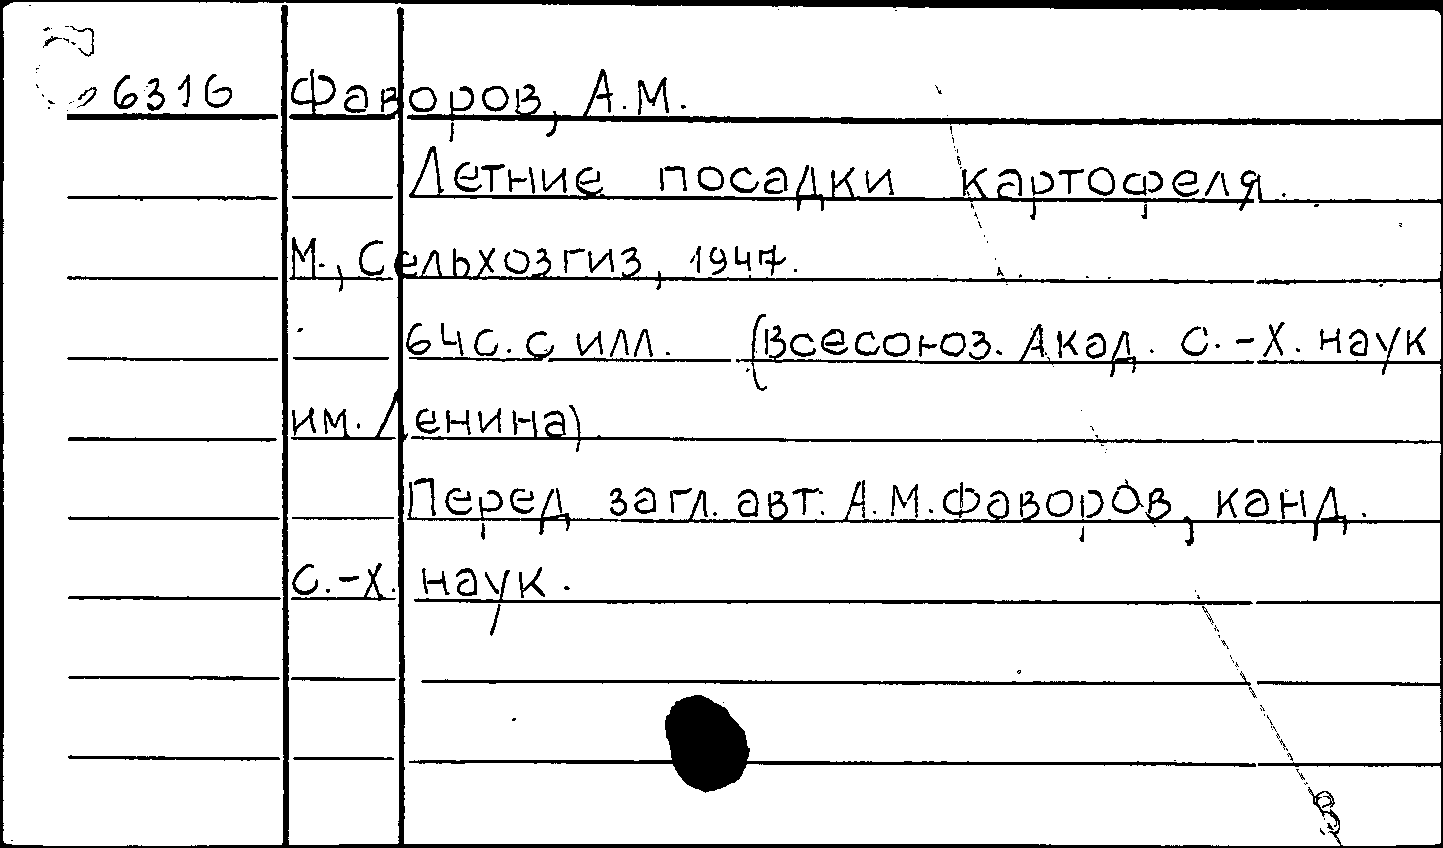 6316 Фаворов, А.М.
Летние посадки картофеля.
М., Сельхозгиз, 1947.
64с. с илл. (Всесоюз. Акад. с.-х. наук
им. Ленина)
Перед загл. авт. А.М.Фаворов, канд.
с.-х. наук.